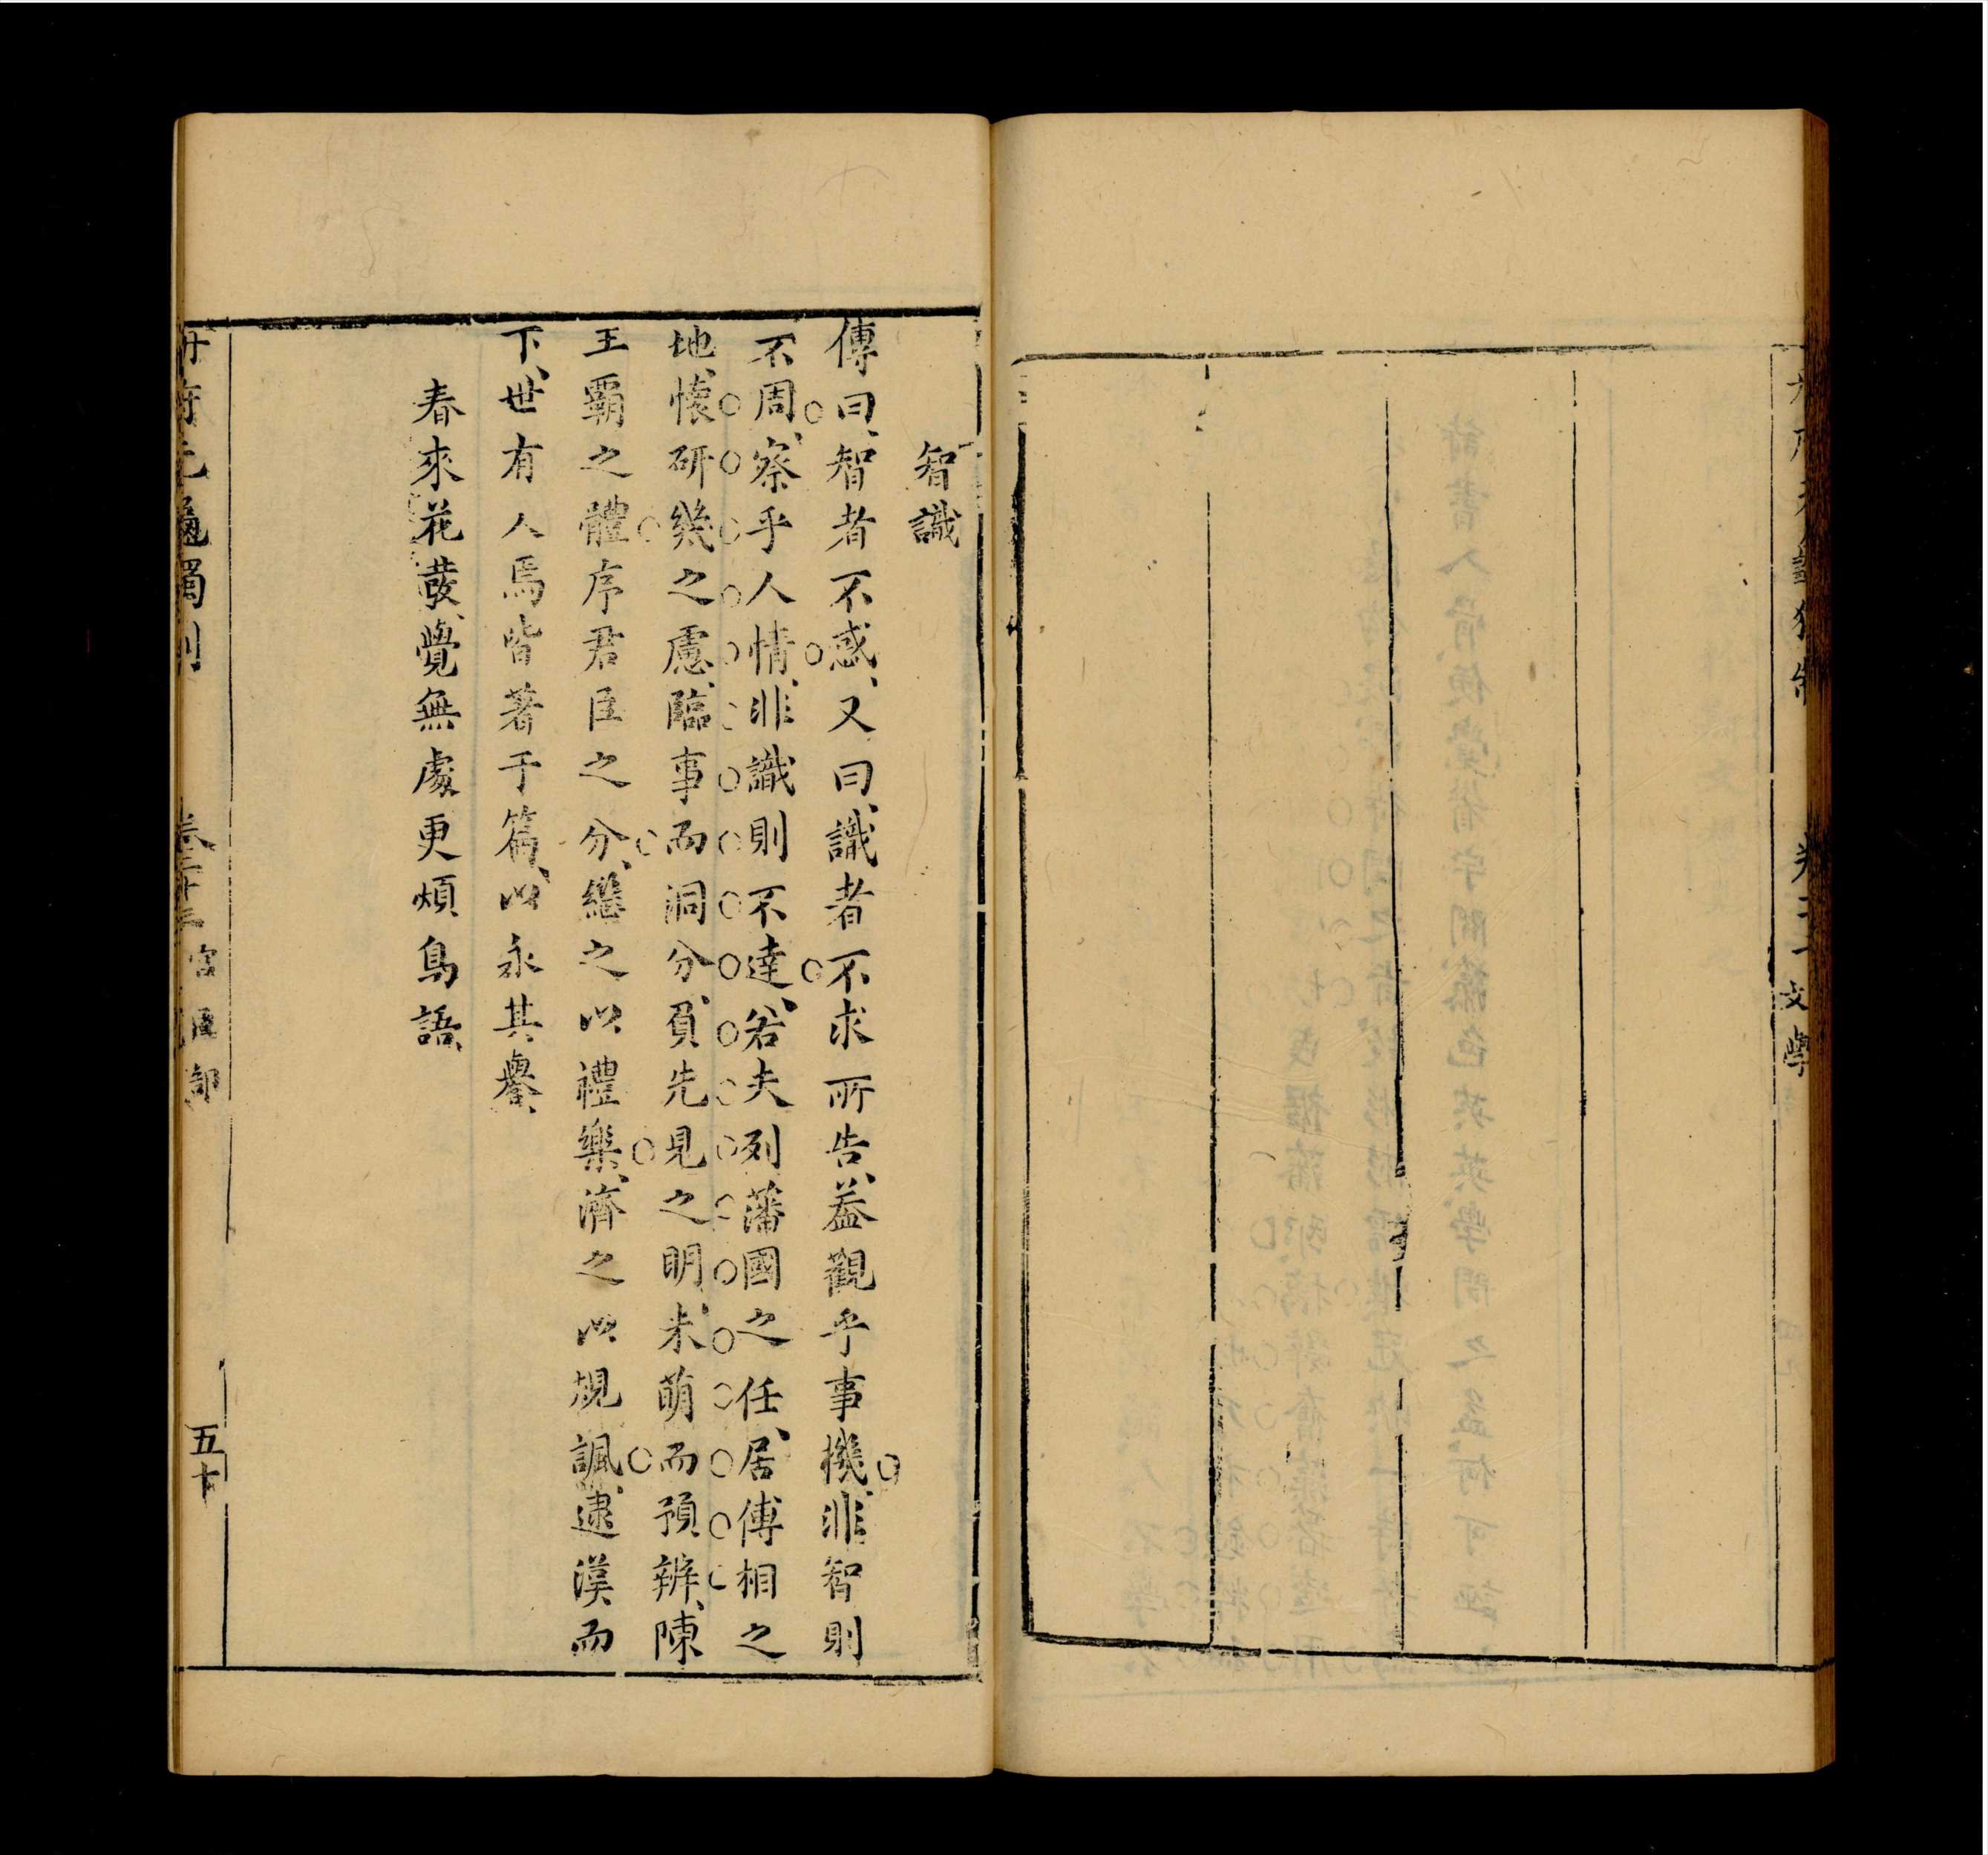 文學
智識
傳曰、智者不惑、又曰、識者不求所告、益觀乎事機、非智則
不周、察乎人情、非識則不達、若夫列藩國之任、居傅相之
地、懷研幾之慮、臨事而洞分、負先見之明、未萌而預辨、陳
王霸之體、序君臣之分、繼之以禮樂、濟之以規諷、逮漢而
下、世有人焉、皆著于篇、以永其譽、
春來花發、覺無處更煩鳥語、
冊府元龜獨制
卷二十三 宮臣部
五十